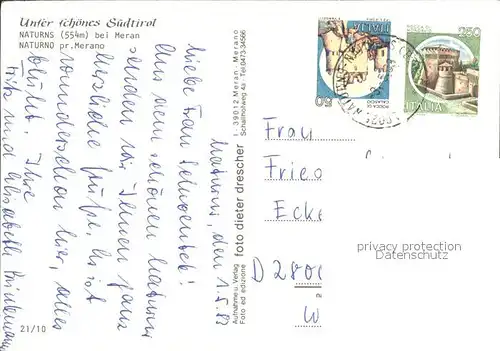 Unser schönes Südtirol
NATURNS (554m) bei Meran
NATURNO pr. Merano
Naturns, den 1.5.83
Liebe Frau
Aus dem schönen Naturns
senden wir Ihnen ganz
herzliche Grüße. Es ist
wunderschön hier, alles
blüht. Ihre
Fritz und Elisabeth
21/10
Aufnahme u. Verlag
Foto ed edizione
foto dieter drescher
I-39012 Meran-Merano
Schallhofweg 4a - Tel. 0473-34566
50
ROCCA DI
CALASCIO
ITALIA
250
ITALIA
Frau
Fried
Ecke
D 280
privacy protection
Datenschutz